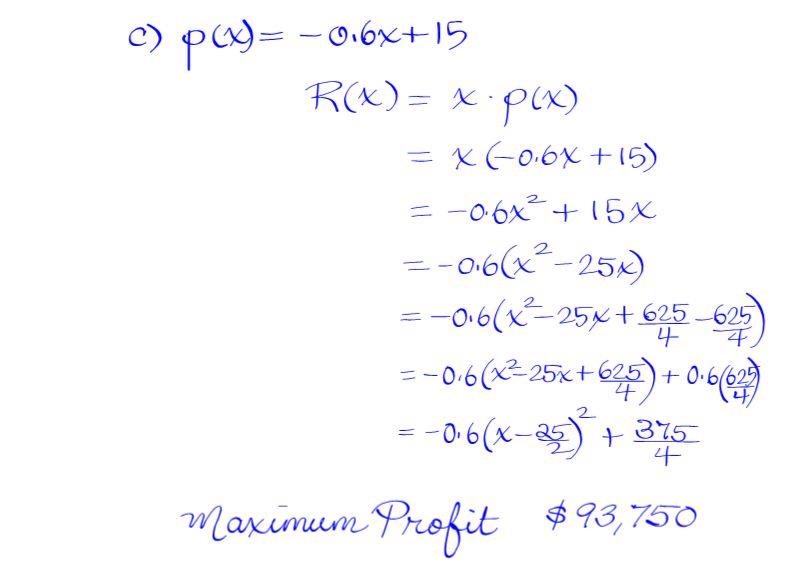 c) p(x) = -0.6x+15
R(x) = x · p(x)
= x (-0.6x + 15)
= -0.6x² + 15x
= -0.6(x² - 25x)
= -0.6(x² - 25x + 625/4 - 625/4)
= -0.6(x² - 25x + 625/4) + 0.6(625/4)
= -0.6(x - 25/2)² + 375/4
Maximum Profit $93,750